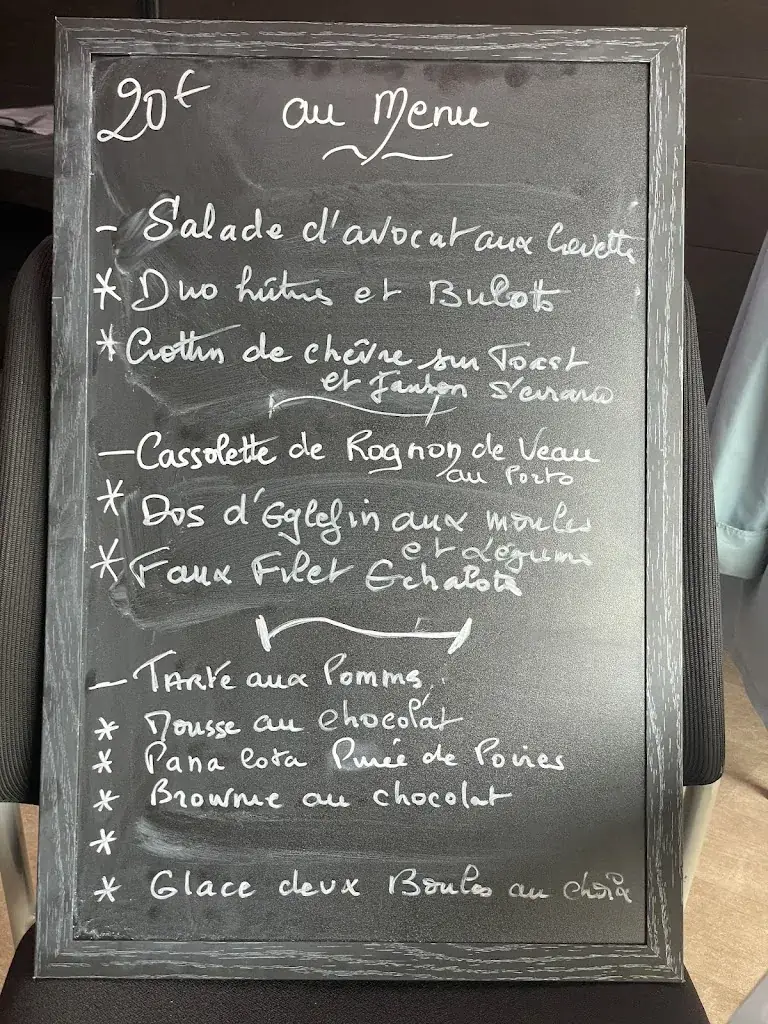 20€ au Menu
- Salade d'avocat aux Crevettes
* Duo huîtres et Bulots
* Crottin de chêvre sur Toast
et Jambon Serrano
- Cassolette de Rognon de Veau
au Porto
* Dos d'Eglefin aux moules
et Légumes
* Faux Filet Echalote
- Tarte aux Pommes
* Mousse au chocolat
* Pana Cota Purée de Poires
* Brownie au chocolat
*
* Glace deux Boules au choix